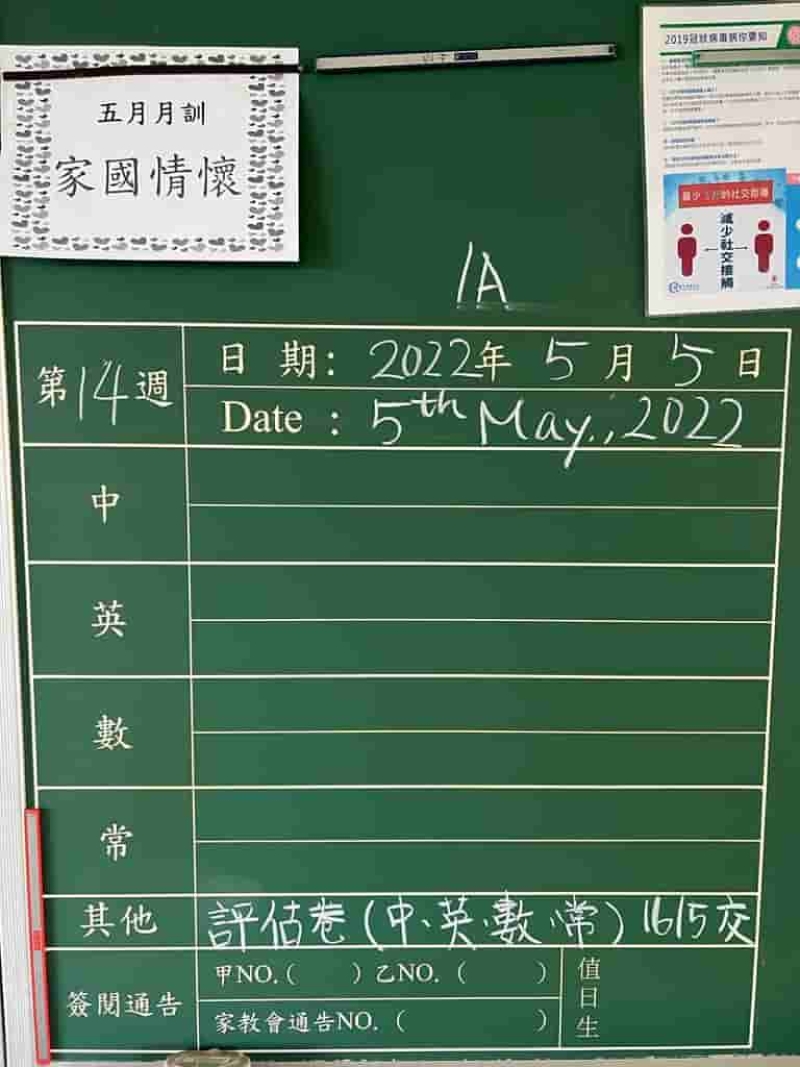 五月月訓
家國情懷
2019冠狀病毒病你要知
最少1米的社交距離
減少社交接觸
1A
第14週
日 期: 2022年 5月 5日
Date : 5th May., 2022
中
英
數
常
其他 評估卷(中、英、數、常) 16/5交
簽閱通告
甲NO.( ) 乙NO.( )
家教會通告NO.( )
值日生